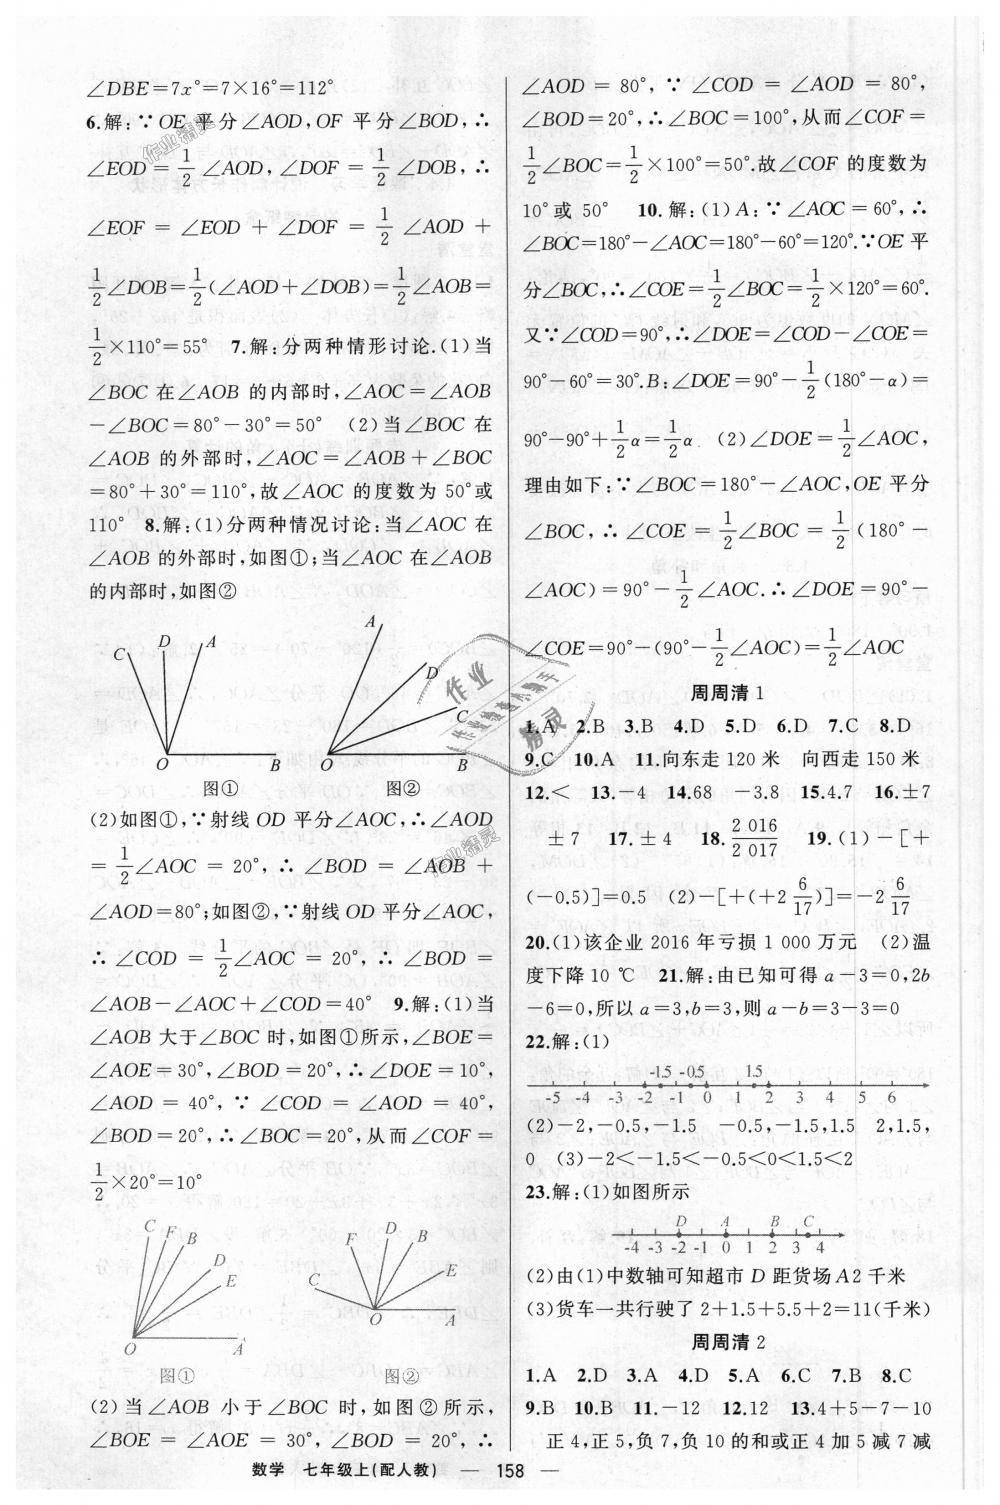 ∠DBE=7x°=7×16°=112°
6.解:∵OE 平分∠AOD,OF 平分∠BOD,∴
∠EOD=1/2∠AOD,∠DOF=1/2∠DOB,∴
∠EOF=∠EOD+∠DOF=1/2∠AOD+
1/2∠DOB=1/2(∠AOD+∠DOB)=1/2∠AOB=
1/2×110°=55° 7.解:分两种情形讨论.(1)当
∠BOC 在∠AOB 的内部时,∠AOC=∠AOB
-∠BOC=80°-30°=50° (2)当∠BOC 在
∠AOB 的外部时,∠AOC=∠AOB+∠BOC
=80°+30°=110°,故∠AOC 的度数为 50°或
110° 8.解:(1)分两种情况讨论:当∠AOC 在
∠AOB 的外部时,如图①;当∠AOC 在∠AOB
的内部时,如图②
C D A O B
图①
A D C O B
图②
(2)如图①,∵射线 OD 平分∠AOC,∴∠AOD
=1/2∠AOC=20°,∴∠BOD=∠AOB+
∠AOD=80°;如图②,∵射线 OD 平分∠AOC,
∴∠COD=1/2∠AOC=20°,∴∠BOD=
∠AOB-∠AOC+∠COD=40° 9.解:(1)当
∠AOB 大于∠BOC 时,如图①所示,∠BOE=
∠AOE=30°,∠BOD=20°,∴∠DOE=10°,
∠AOD=40°,∵∠COD=∠AOD=40°,
∠BOD=20°,∴∠BOC=20°,从而∠COF=
1/2×20°=10°
C F B D E O A
图①
F D B E C O A
图②
(2)当∠AOB 小于∠BOC 时,如图②所示,
∠BOE=∠AOE=30°,∠BOD=20°,∴
∠AOD=80°,∵∠COD=∠AOD=80°,
∠BOD=20°,∴∠BOC=100°,从而∠COF=
1/2∠BOC=1/2×100°=50°.故∠COF 的度数为
10°或 50° 10.解:(1)A:∵∠AOC=60°,∴
∠BOC=180°-∠AOC=180°-60°=120°.∵OE 平
分∠BOC,∴∠COE=1/2∠BOC=1/2×120°=60°.
又∵∠COD=90°,∴∠DOE=∠COD-∠COE=
90°-60°=30°.B:∠DOE=90°-1/2(180°-α)=
90°-90°+1/2α=1/2α. (2)∠DOE=1/2∠AOC,
理由如下:∵∠BOC=180°-∠AOC,OE 平分
∠BOC,∴∠COE=1/2∠BOC=1/2(180°-
∠AOC)=90°-1/2∠AOC.∴∠DOE=90°-
∠COE=90°-(90°-1/2∠AOC)=1/2∠AOC
周周清 1
1.A 2.B 3.B 4.D 5.D 6.D 7.C 8.D
9.C 10.A 11.向东走 120 米 向西走 150 米
12.< 13.-4 14.68 -3.8 15.4.7 16.±7
±7 17.±4 18.2 016/2 017 19.(1)-[+
(-0.5)]=0.5 (2)-[+(+2 6/17)]=-2 6/17
20.(1)该企业 2016 年亏损 1 000 万元 (2)温
度下降 10 ℃ 21.解:由已知可得 a-3=0,2b
-6=0,所以 a=3,b=3,则 a-b=3-3=0
22.解:(1)
-1.5 -0.5 1.5
-5 -4 -3 -2 -1 0 1 2 3 4 5 6
(2)-2,-0.5,-1.5 -0.5,-1.5,2 2,1.5,
0 (3)-2<-1.5<-0.5<0<1.5<2
23.解:(1)如图所示
D A B C
-4 -3 -2 -1 0 1 2 3 4
(2)由(1)中数轴可知超市 D 距货场 A2 千米
(3)货车一共行驶了 2+1.5+5.5+2=11(千米)
周周清 2
1.A 2.D 3.A 4.D 5.A 6.C 7.B 8.C
9.B 10.B 11.-12 12.12 13.4+5-7-10
正 4,正 5,负 7,负 10 的和或正 4 加 5 减 7 减
数学 七年级上(配人教) — 158 —
作业精灵
作业精灵
作业
精灵